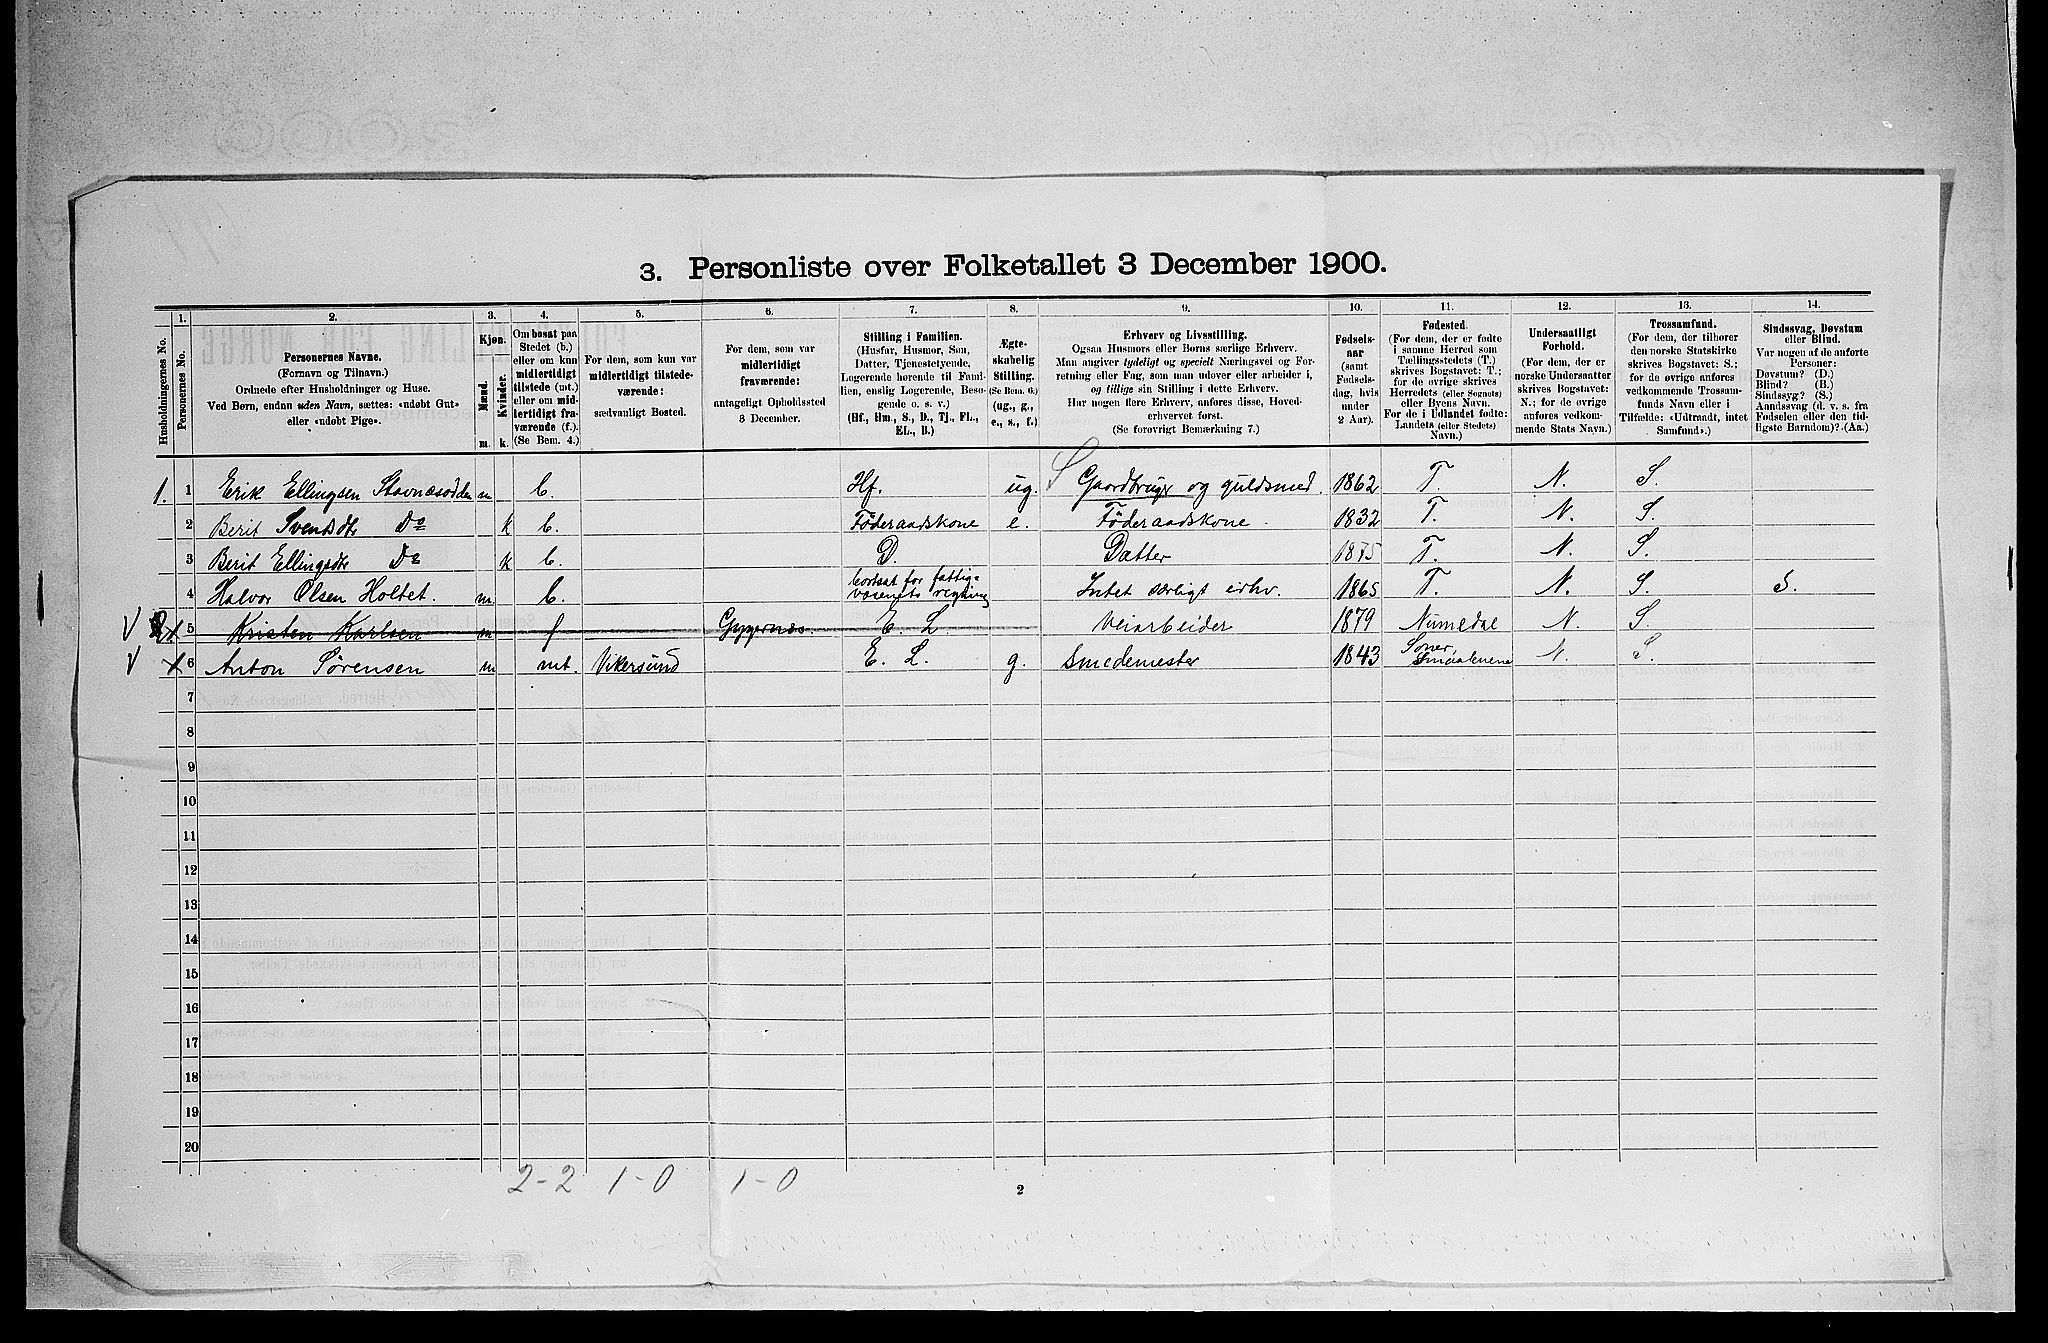 3. Personliste over Folketallet 3 December 1900.
1. 2. 3. 4. 5. 6. 7. 8. 9. 10. 11. 12. 13. 14.
Husholdningernes No.
Personernes No.
Personernes Navne.
(Fornavn og Tilnavn.)
Ordnede efter Husholdninger og Huse.
Ved Børn, endnu uden Navn, sættes: «udøbt Gut»
eller «udøbt Pige».
Kjøn.
Mænd.
Kvinder.
m. k.
Om bosat paa
Stedet (b.)
eller om kun
midlertidigt
tilstede (mt.)
eller om mid-
lertidigt fra-
værende (f.)
(Se Bem. 4.)
For dem, som kun var
midlertidigt tilstede-
værende:
sædvanligt Bosted.
For dem, som var
midlertidigt
fraværende:
antageligt Opholdssted
3 December.
Stilling i Familien.
(Husfar, Husmor, Søn,
Datter, Tjenestetyende,
Logerende hørende til Fami-
lien, enslig Logerende, Besø-
gende o. s. v.)
(Hf., Hm., S., D., Tj., FL.,
EL., B.)
Ægte-
skabelig
Stilling.
(Se Bem. 6.)
(ug., g.,
e., s., f.)
Erhverv og Livsstilling.
Ogsaa Husmors eller Børns særlige Erhverv.
Man angiver tydeligt og specielt Næringsvei og For-
retning eller Fag, som man udøver eller arbeider i,
og tillige sin Stilling i dette Erhverv.
Har nogen flere Erhverv, anføres disse, Hoved-
erhvervet først.
(Se forøvrigt Bemærkning 7.)
Fødsels-
aar
(samt
Fødsels-
dag, hvis
under
2 Aar).
Fødested.
(For dem, der er fødte
i samme Herred som
Tællingsstedets (T.)
skrives Bogstavet: T.;
for de øvrige skrives
Herredets (eller Sognets)
eller Byens Navn.
For de i Udlandet fødte:
Landets (eller Stedets)
Navn.)
Undersaatligt
Forhold.
(For dem, der er
norske Undersaatter
skrives Bogstavet:
N.; for de øvrige
anføres vedkom-
mende Stats Navn.)
Trossamfund.
(For dem, der tilhører
den norske Statskirke
skrives Bogstavet: S.;
for de øvrige anføres
vedkommende Trossam-
funds Navn eller i
Tilfælde: «Udtraadt, intet
Samfund».)
Sindssvag, Døvstum
eller Blind.
Var nogen af de anførte
Personer:
Døvstum? (D.)
Blind? (B.)
Sindssyg? (S.)
Aandssvag (d. v. s. fra
Fødselen eller den tid-
ligste Barndom)? (Aa.)
1. 1 Erik Ellingsen Stavnæsodden m b. Hf. ug. Gaardbruger og guldsmed. 1862 T. N. S.
2 Berit Svendsdtr Do k b. Föderaadskone e. Föderaadskone. 1832 T. N. S.
3 Berit Ellingsdtr Do k b. D. Datter 1875 T. N. S.
4 Halvor Olsen Holtet. m. b. bortsat for fattig-
væsenets regning Intet særligt erhv. 1865 T. N. S. S.
5 Kristen Karlsen m f E. L. Veiarbeider 1879 Numedal N. S.
6 Anton Sørensen m mt. Vikersund E. L. g. Smedemester 1843 Soner, Smaalenene N. S.
7
8
9
10
11
12
13
14
15
16
17
18
19
20
2-2 1-0 1-0
2